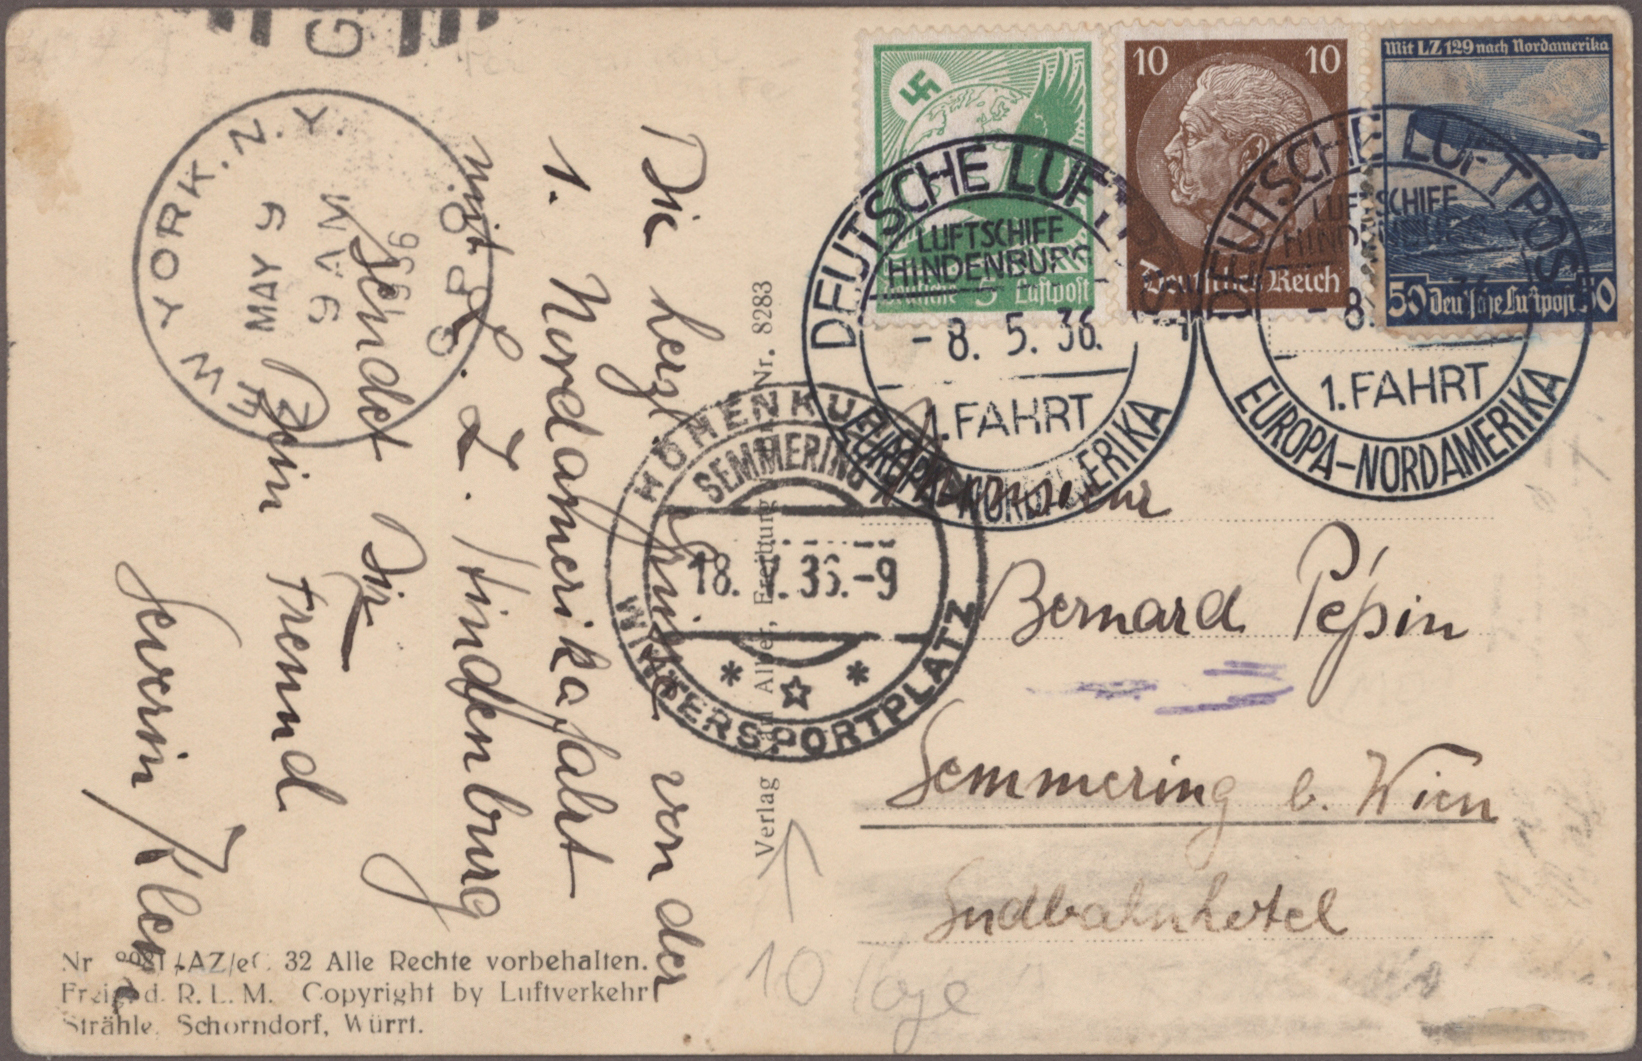 G
NEW YORK. N. Y.
MAY 9
9 AM
1936
G.P.O.
Die herzl Grüße von der
1. Nordamerikafahrt
mit L. Z. Hindenburg
sendet Dir
Dein Freund
Severin Klene
Nr 32 Alle Rechte vorbehalten.
Freig. d. R. L. M. Copyright by Luftverkehr
Strähle, Schorndorf, Württ.
Verlag Freiburg Nr. 8283
10 Tage
HÖHENKURORT
SEMMERING
18. V. 36.-9
WINTERSPORTPLATZ
Deutsche 5 Luftpost
10 10
Deutsches Reich
Mit LZ 129 nach Nordamerika
50 Deutsche Luftpost 50
DEUTSCHE LUFTPOST
LUFTSCHIFF
HINDENBURG
- 8. 5. 36.
1. FAHRT
EUROPA-NORDAMERIKA
DEUTSCHE LUFTPOST
LUFTSCHIFF
HINDENBURG
- 8.
1. FAHRT
EUROPA-NORDAMERIKA
Monsieur
Bernard Pépin
Semmering b. Wien
Südbahnhotel